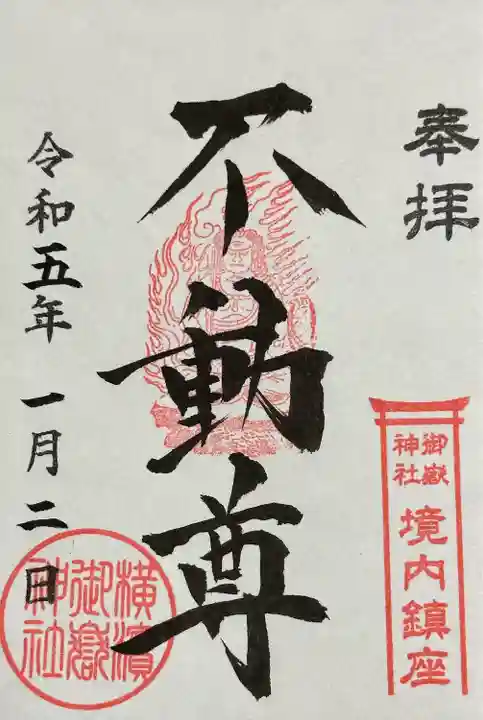 奉拝
御嶽
神社
境内鎮座
不動尊
令和五年 一月二日
横濵
御嶽
神社